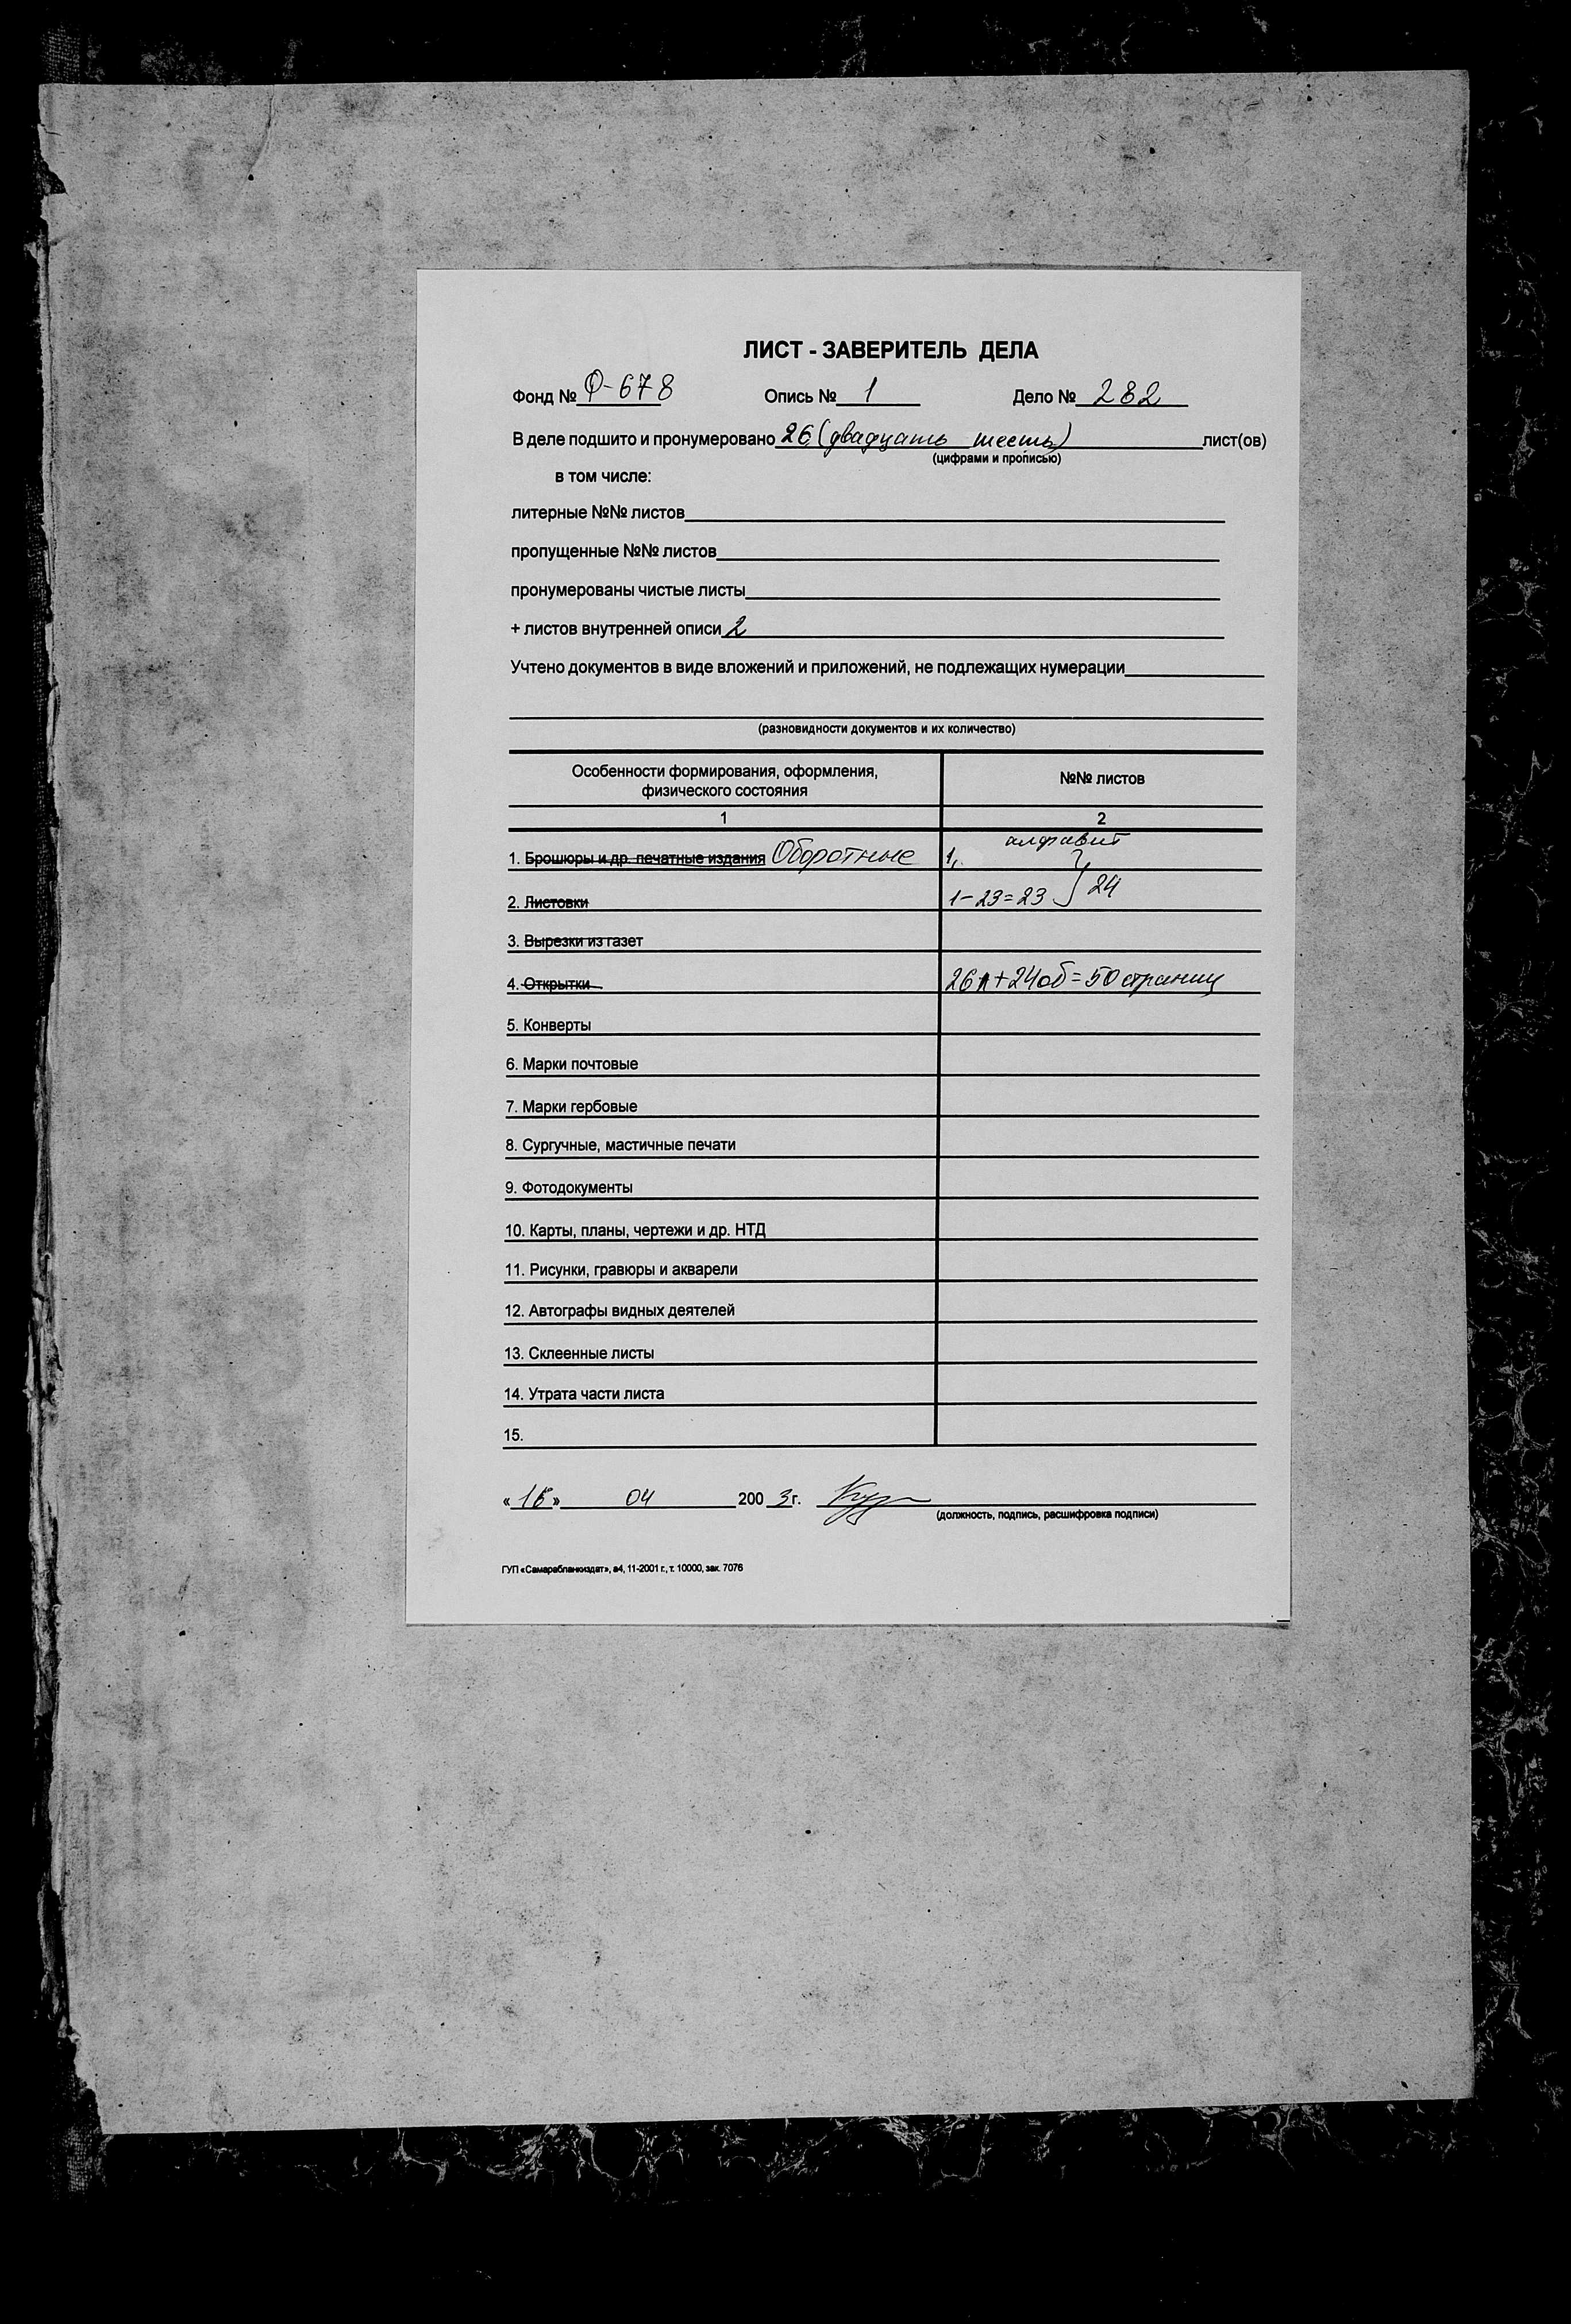 ЛИСТ - ЗАВЕРИТЕЛЬ ДЕЛА
Фонд № Ф-678 Опись № 1 Дело № 282
В деле подшито и пронумеровано 26 (двадцать шесть) лист(ов)
(цифрами и прописью)
в том числе:
литерные №№ листов
пропущенные №№ листов
пронумерованы чистые листы
+ листов внутренней описи 2
Учтено документов в виде вложений и приложений, не подлежащих нумерации
(разновидности документов и их количество)
Особенности формирования, оформления, №№ листов
физического состояния
1 2
алфавит
1. Брошюры и др. печатные издания Оборотные 1,
2. Листовки 1-23=23 } 24
3. Вырезки из газет
4. Открытки 26л+24об=50 страниц
5. Конверты
6. Марки почтовые
7. Марки гербовые
8. Сургучные, мастичные печати
9. Фотодокументы
10. Карты, планы, чертежи и др. НТД
11. Рисунки, гравюры и акварели
12. Автографы видных деятелей
13. Склеенные листы
14. Утрата части листа
15.
« » 04 2003г.
(должность, подпись, расшифровка подписи)
ГУП «Самарабланкиздат», а4, 11-2001 г., т. 10000, зак. 7076